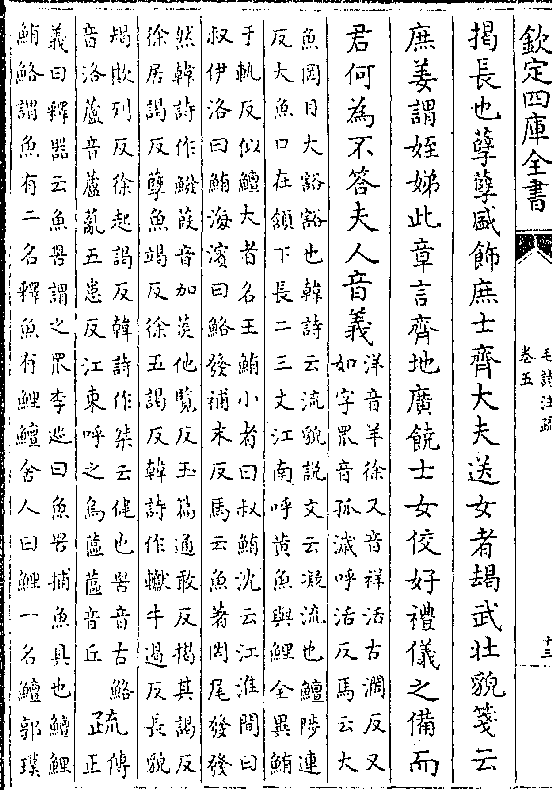 欽定四庫全書
毛詩注疏
卷五
十三
揭長也孽孽盛飾庶士齊大夫送女者朅武壯貌箋云
庶姜謂姪娣此章言齊地廣饒士女佼好禮儀之備而
君何為不答夫人音義
洋音羊徐又音祥活古濶反又
如字罛音孤濊呼活反馬云大
魚罔目大豁豁也韓詩云流貌説文云凝流也鱣陟連
反大魚口在頷下長二三丈江南呼黄魚與鯉全異鮪
于軌反似鱣大者名王鮪小者曰叔鮪沈云江淮間曰
叔伊洛曰鮪海濱曰鮥發補末反馬云魚著罔尾發發
然韓詩作鱍葭音加菼他覧反玉篇通敢反揭其謁反
徐居謁反孽魚竭反徐五謁反韓詩作钀牛遏反長貌
朅欺列反徐起謁反韓詩作桀云健也罟音古鮥
音洛蘆音盧薍五患反江東呼之烏蓲蓲音丘
疏
傳
正
義曰釋器云魚罟謂之罛李巡曰魚罟捕魚具也鱣鯉
鮪鮥謂魚有二名釋魚有鯉鱣舍人曰鯉一名鱣郭璞